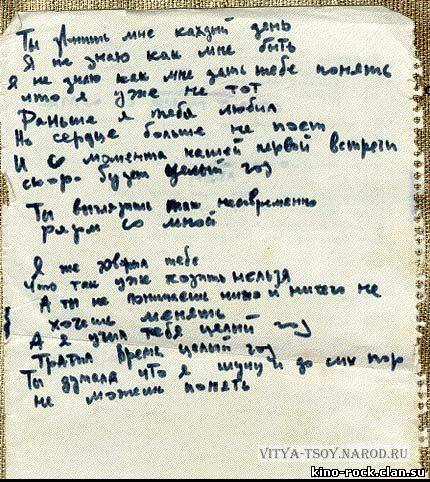 Ты звонишь мне каждый день
Я не знаю как мне быть
Я не знаю как мне дать тебе понять
что я уже не тот
Раньше я тебя любил
Но сердце больше не поет
И с момента нашей первой встречи
скоро будет целый год
Ты выглядишь так несовременно
рядом со мной
Я же говорил тебе
что так уже ходить нельзя
А ты не понимаешь ничего и ничего не
хочешь менять
А я учил тебя целый год
Тратил время целый год
Ты думала что я шучу и до сих пор
не можешь понять
VITYA-TSOY.NAROD.RU
kino-rock.clan.su